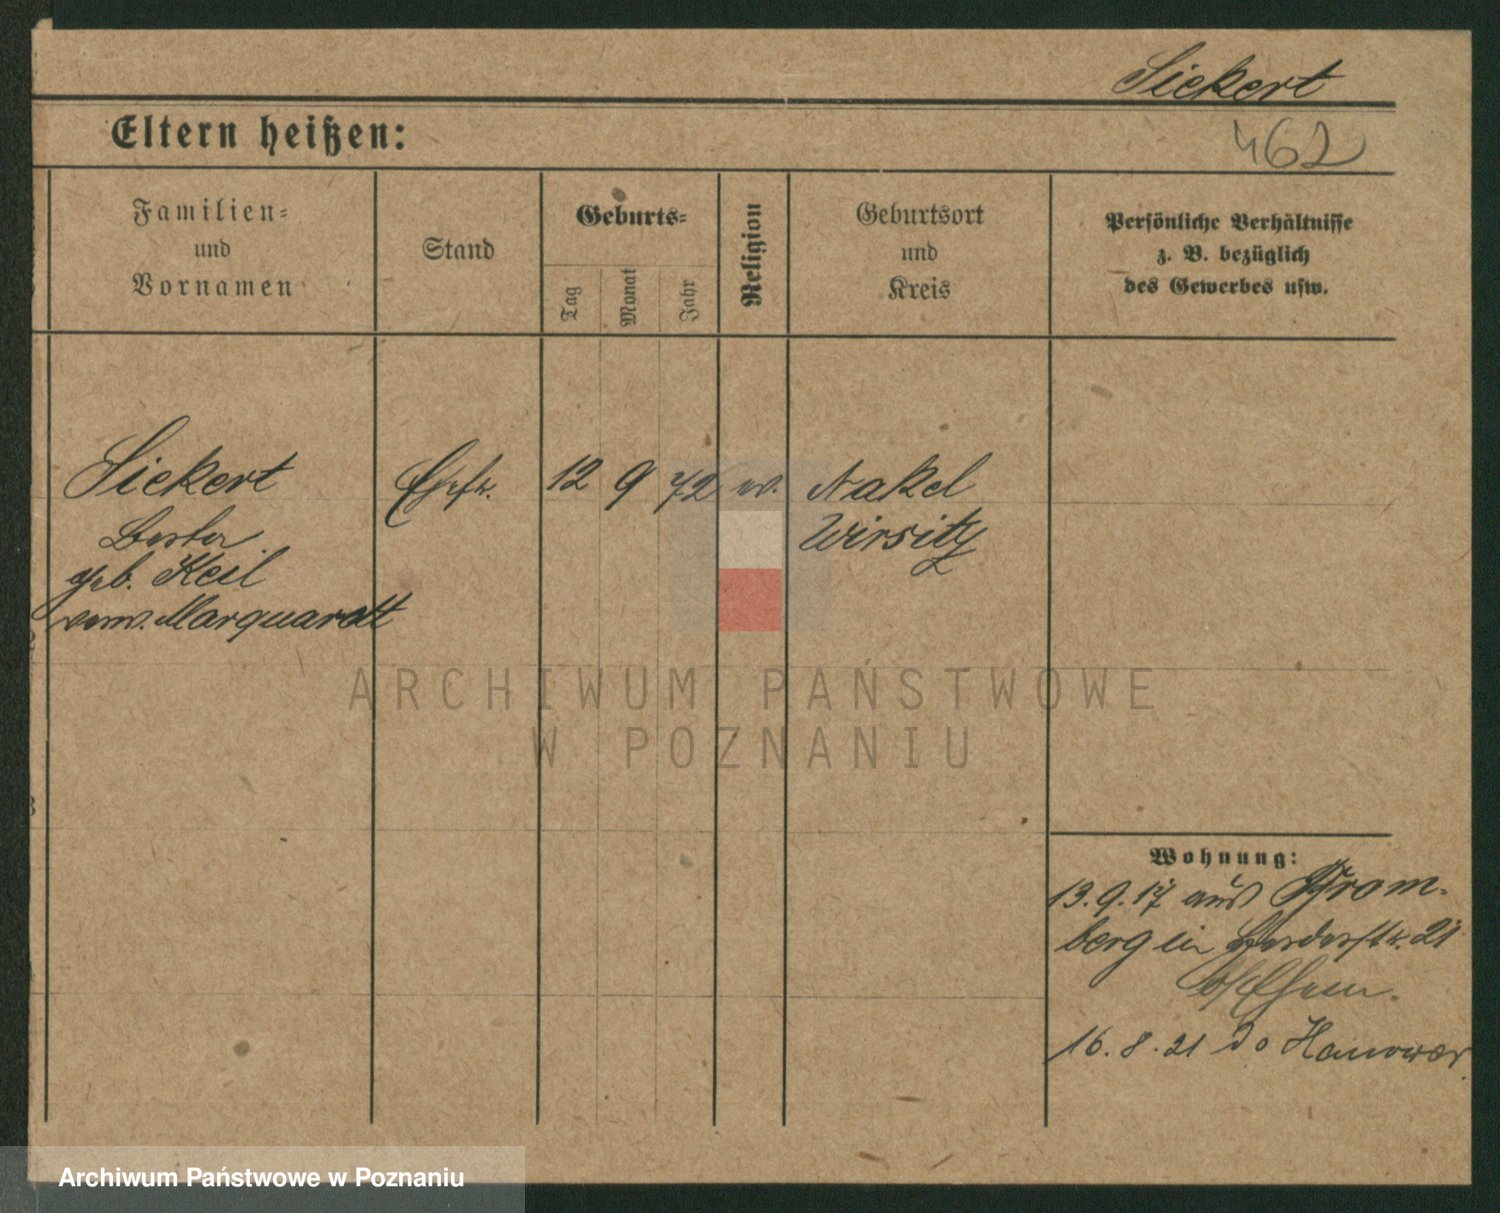 Siekert
Eltern heißen:
462
Familien=
und
Vornamen
Stand
Geburts=
Tag
Monat
Jahr
Religion
Geburtsort
und
Kreis
Persönliche Verhältnisse
z. B. bezüglich
des Gewerbes usw.
Siekert Ehefr. 12 9 72 ev. Nakel
Wirsitz
geb. Keil
verw. Marquardt
Wohnung:
13.9.17 aus Brom-
berg in 21
b/Ehem.
16.8.21 do Hannover
ARCHIWUM PAŃSTWOWE
W POZNANIU
Archiwum Państwowe w Poznaniu